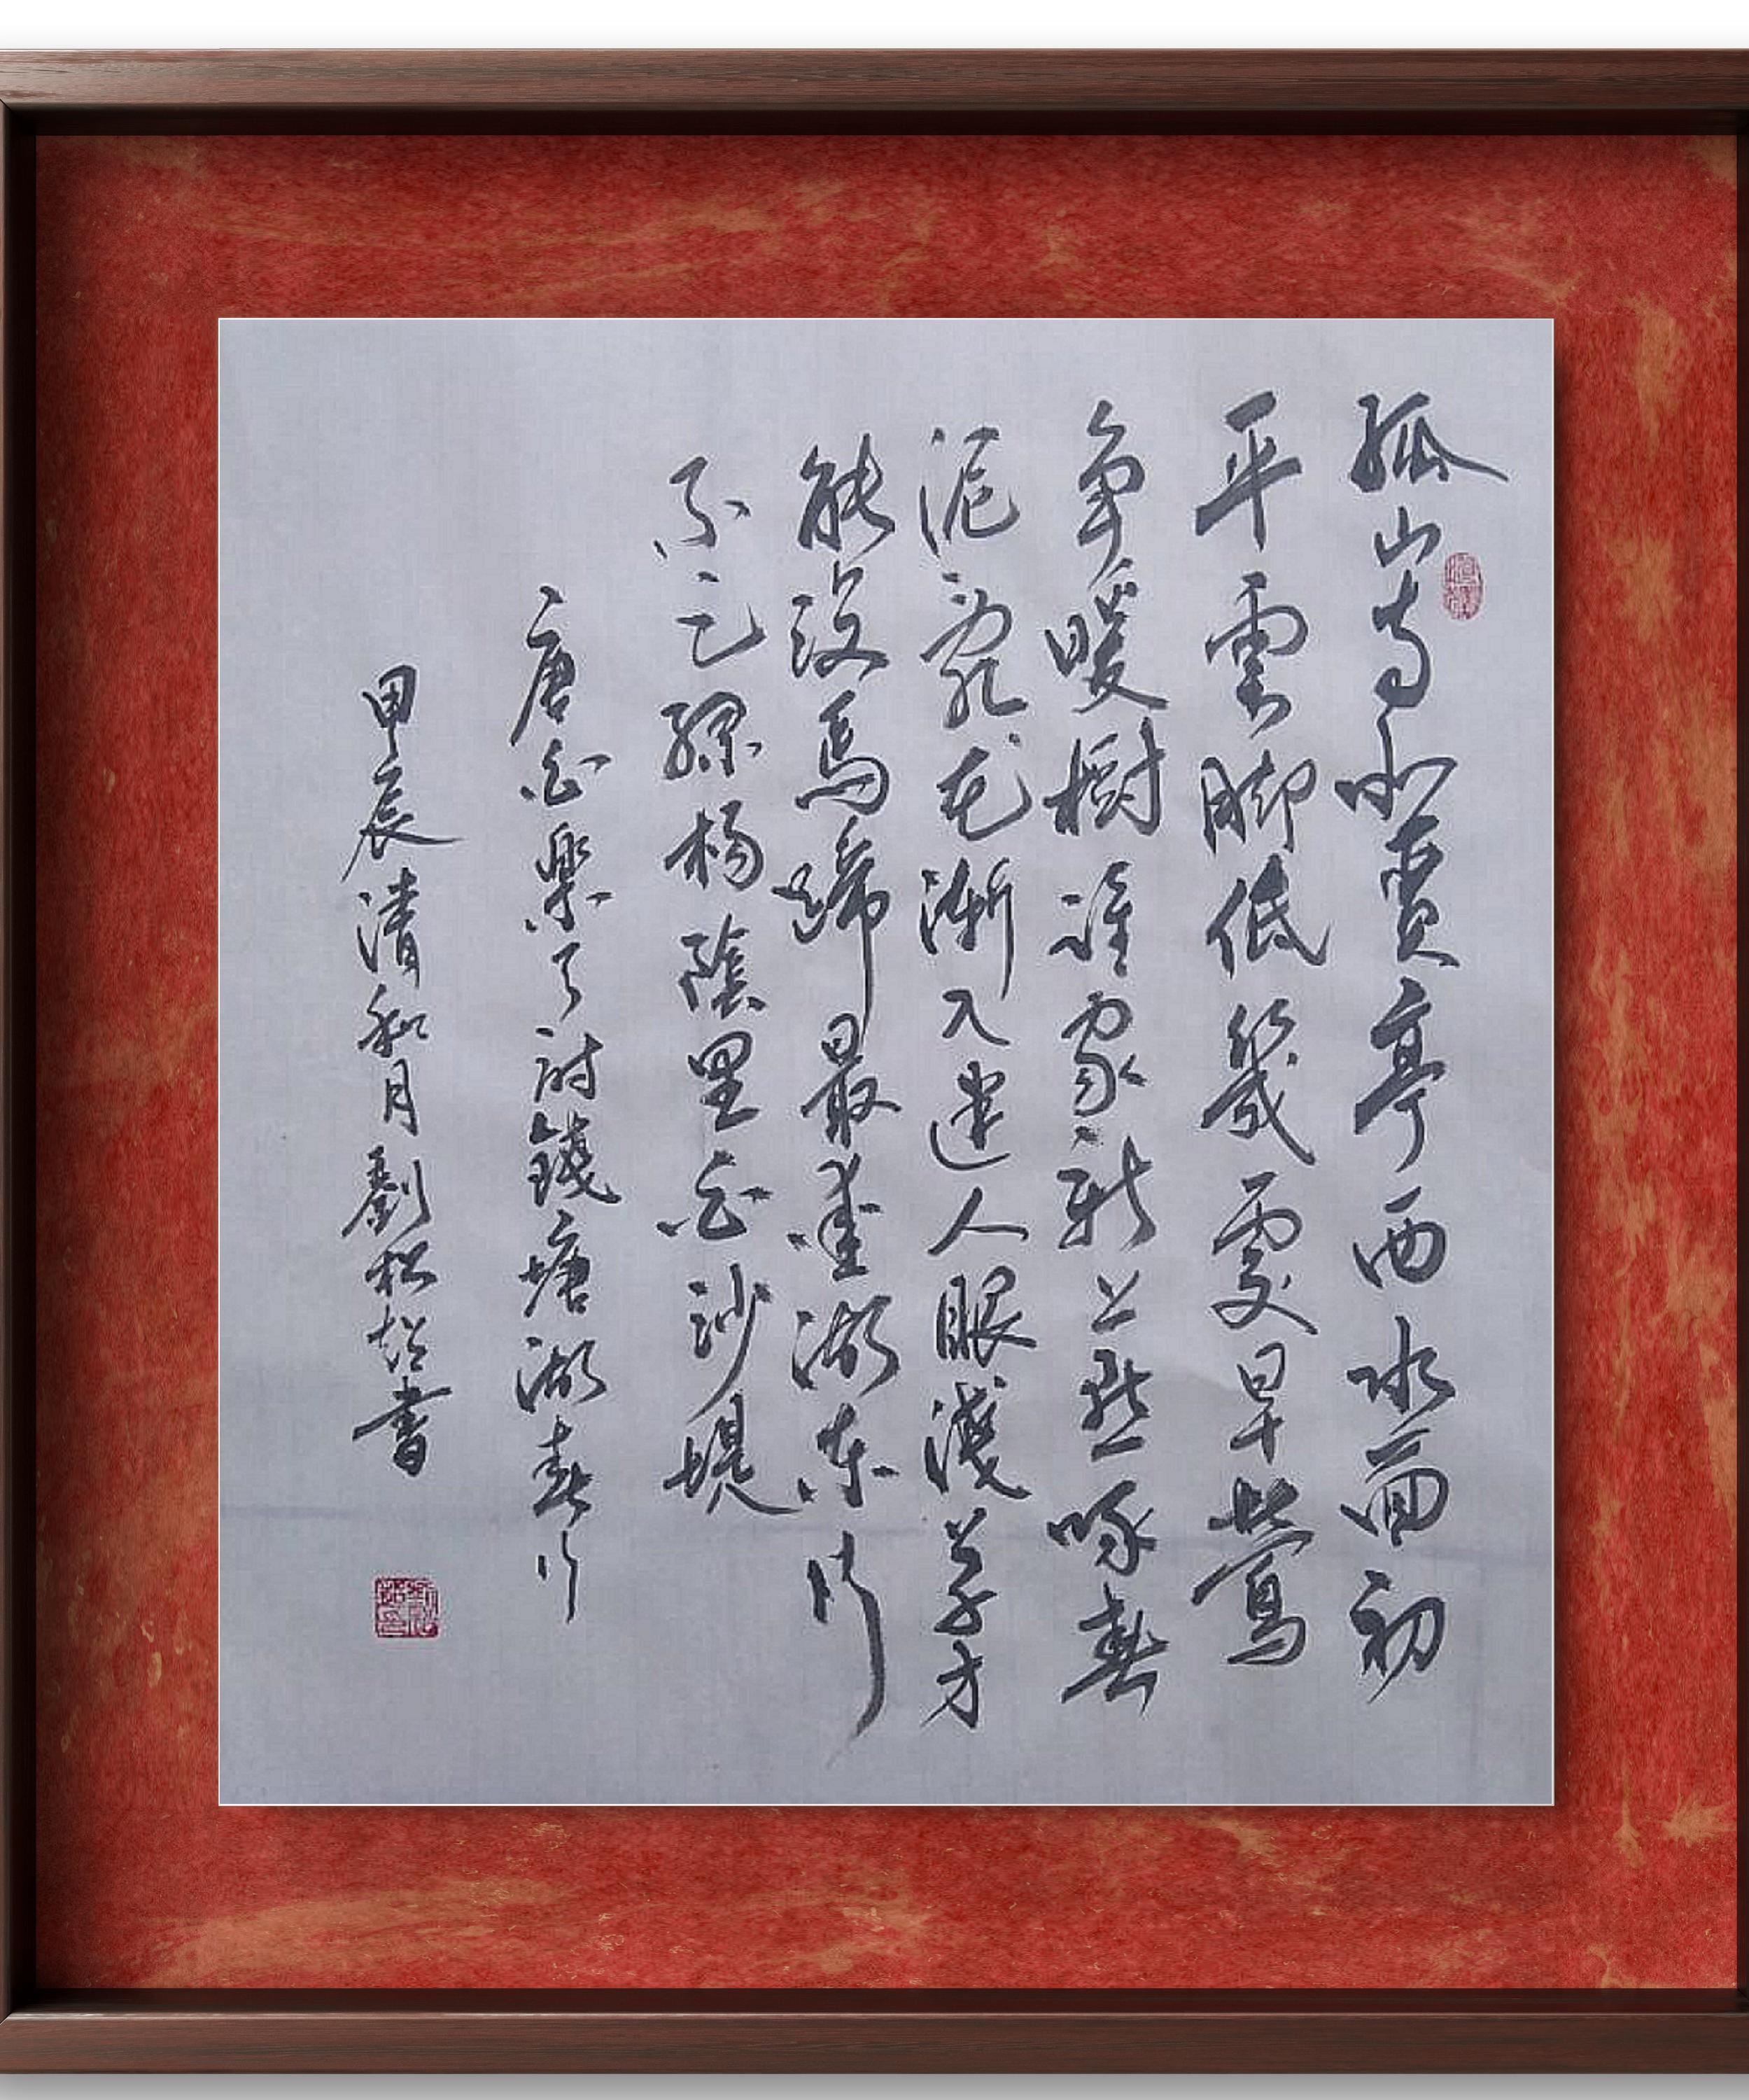 孤山寺北賈亭西水面初
平雲脚低幾處早鶯
争暖樹誰家新燕啄春
泥亂花漸入迷人眼淺草才
能没馬蹄最愛湖东行
不足綠楊陰里白沙堤
唐白樂天詩錢塘湖春行
甲辰清和月劉松書